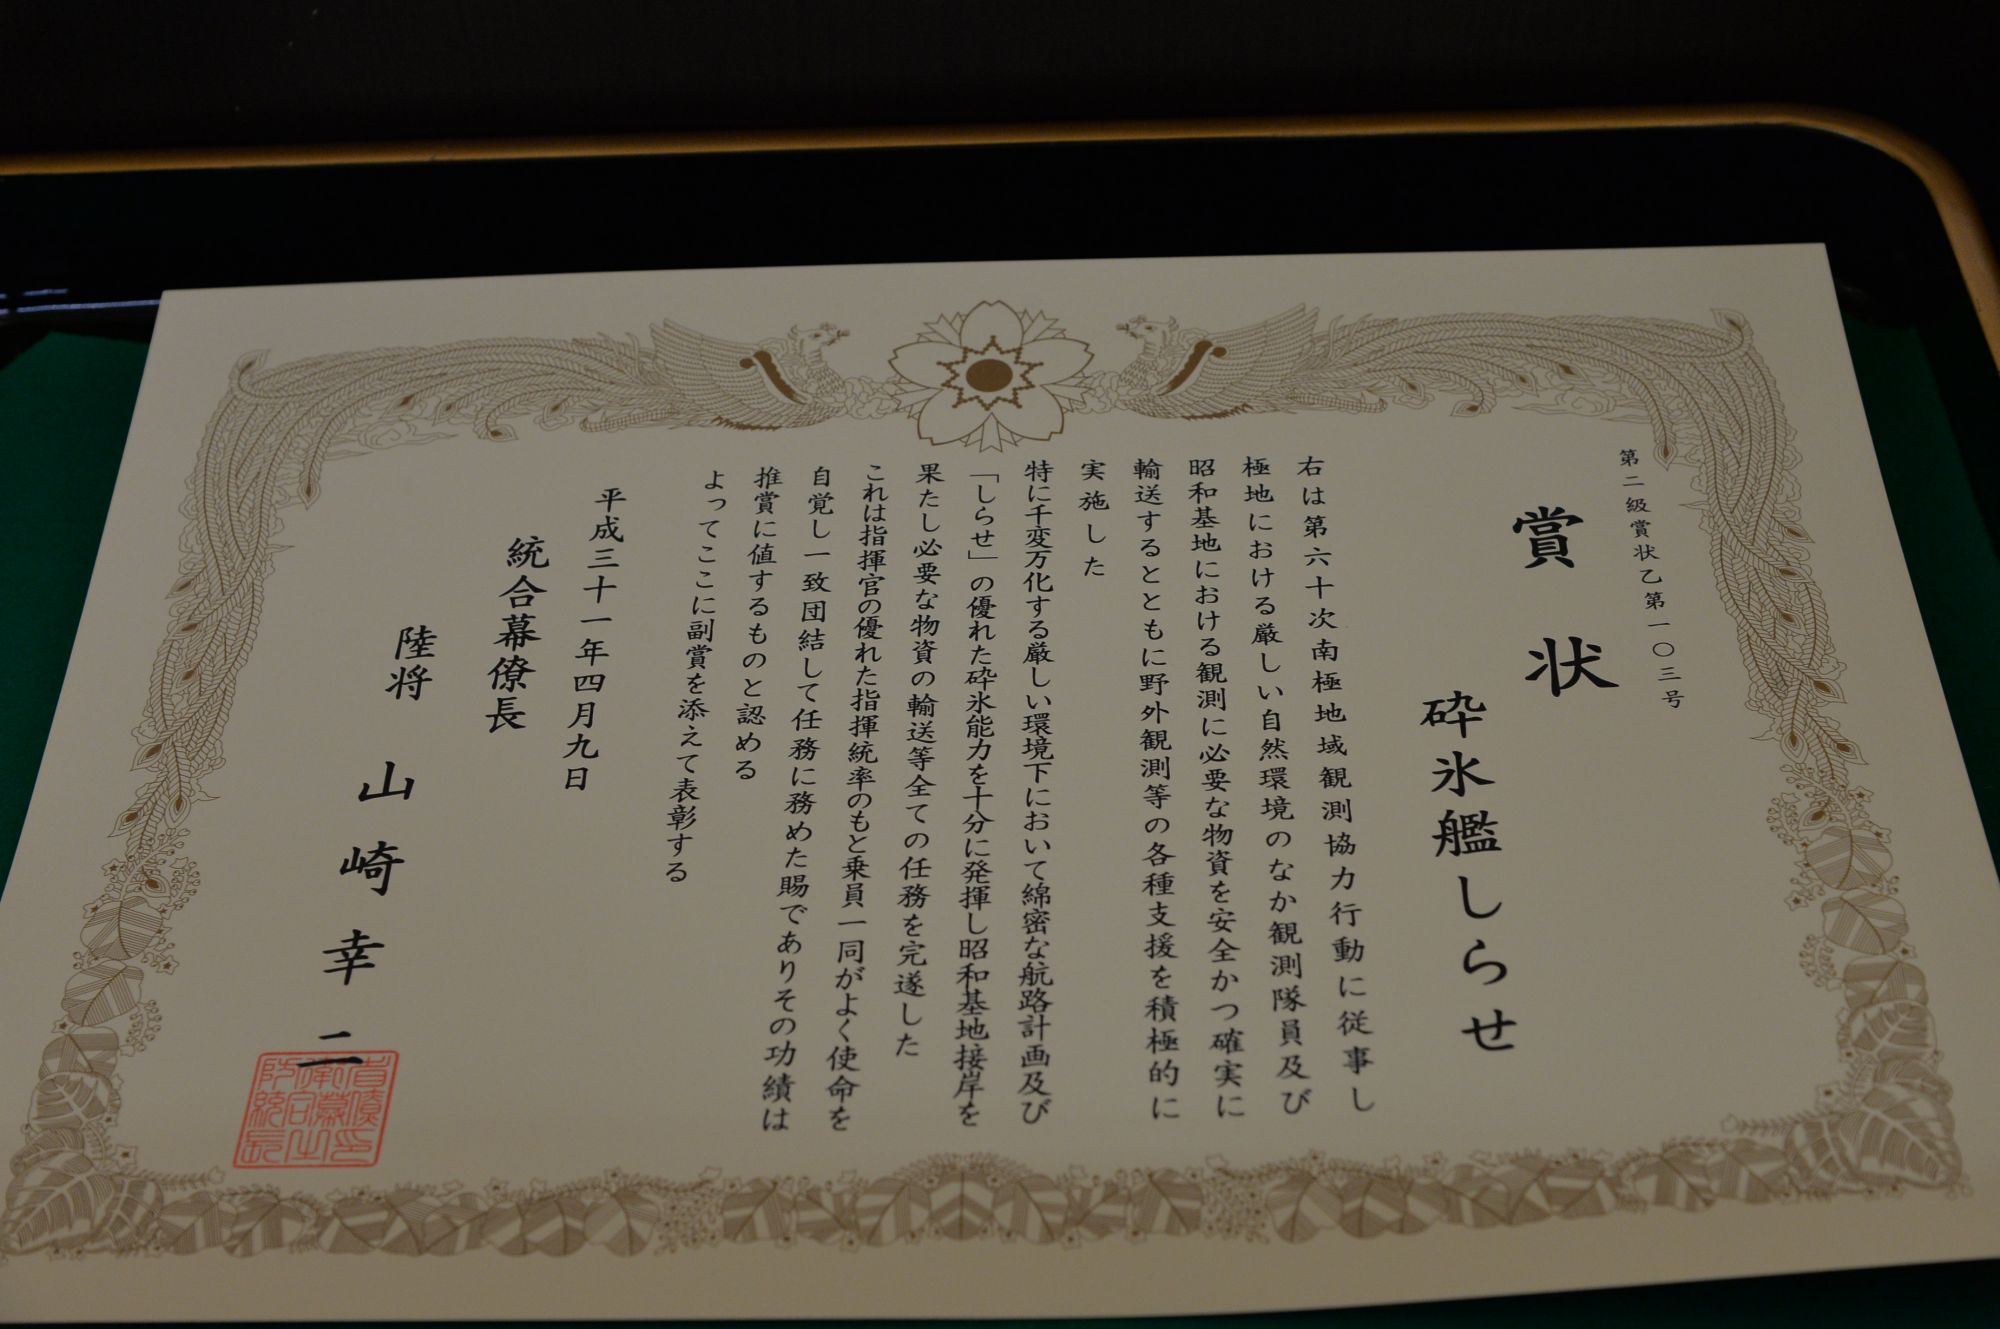 第二級賞状乙第一〇三号
賞状
砕氷艦しらせ
右は第六十次南極地域観測協力行動に従事し
極地における厳しい自然環境のなか観測隊員及び
昭和基地における観測に必要な物資を安全かつ確実に
輸送するとともに野外観測等の各種支援を積極的に
実施した
特に千変万化する厳しい環境下において綿密な航路計画及び
「しらせ」の優れた砕氷能力を十分に発揮し昭和基地接岸を
果たし必要な物資の輸送等全ての任務を完遂した
これは指揮官の優れた指揮統率のもと乗員一同がよく使命を
自覚し一致団結して任務に務めた賜でありその功績は
推賞に値するものと認める
よってここに副賞を添えて表彰する
平成三十一年四月九日
統合幕僚長
陸将 山崎幸二